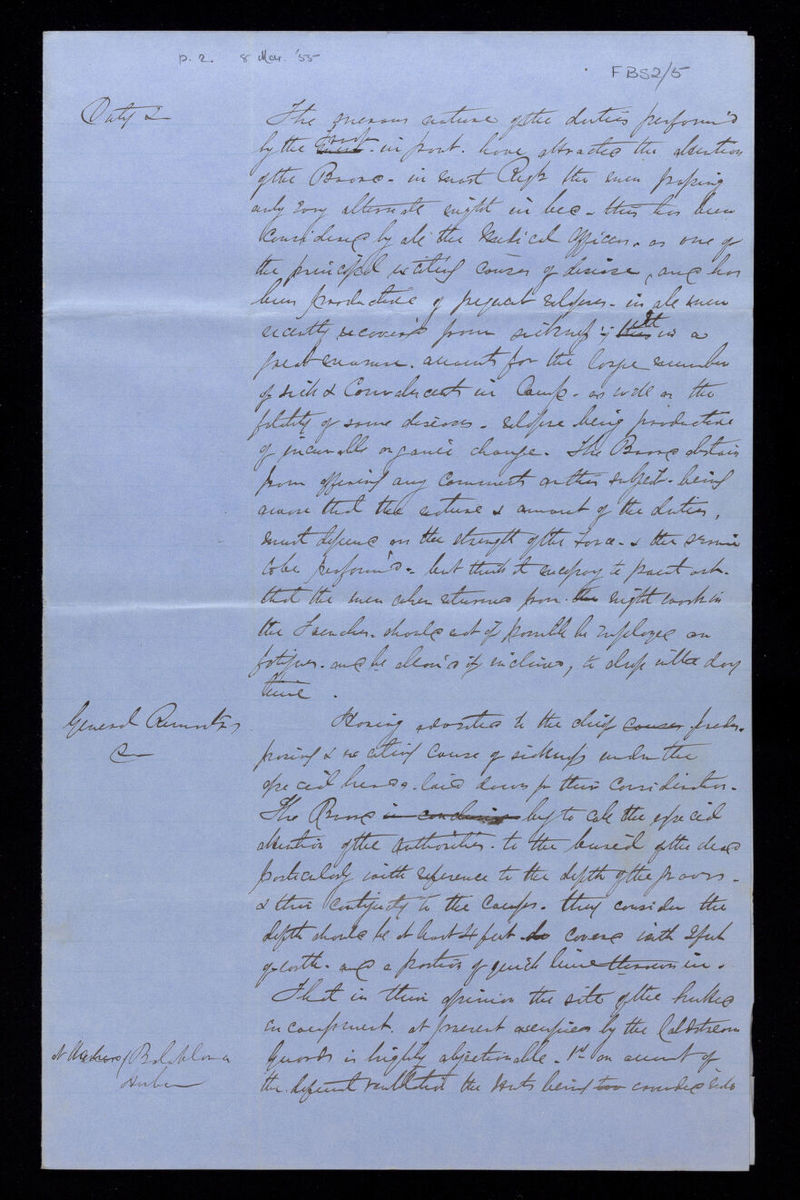 p. 2. 8 Mar. '55
FBS2/5
Duty &
The onerous nature of the duties perform'd
by the troops in front. have attracted the attention
of the Board - in most Regts the men passing
only every alternate night in bed - this has been
considered by all the Medical Officers. as one of
the principal exciting causes of disease, and has
been productive of frequent relapses - in all men
recently recovered from sickness & this in a
great measure. accounts for the large number
of sick & Convalescents in Camp - as well as the
fatality of some diseases - relapse being productive
of incurable organic change. The Board abstain
from offering any comments on this subject - being
aware that the nature & amount of the duties,
must depend on the strength of the Force - & the service
to be perform'd - but think it necessary to point out.
that the men when returned from the night work in
the Trenches. should not if possible be employed on
fatigues. and be allow'd if inclined, to sleep in the day
time.
General Remarks
Having adverted to the chief causes predis-
posing & exciting cause of sickness under the
special heads. laid down for their consideration -
The Board in conclusion beg to call the special
attention of the authorities. to the burial of the dead
particularly with reference to the depth of the graves -
& their contiguity to the Camps. they consider the
depth should be at least 4 feet covered with 2 feet
of earth. and a portion of quick lime thrown in.
That in their opinion the site of the
encampment. at present occupied by the Coldstream
Balaklava
Guards is highly objectionable - 1st on account of
the deficient ventilation the huts being too crowded